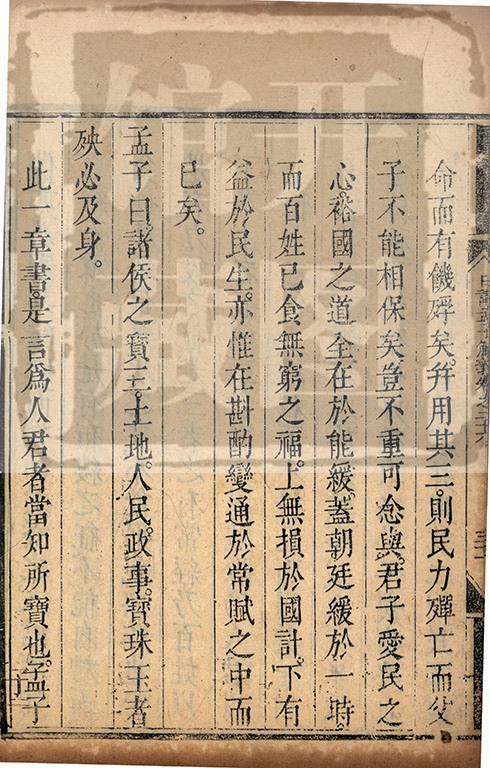 命而有饑殍矣。并用其三。則民力殫亡。而父
子不能相保矣。豈不重可念與。君子愛民之
心。裕國之道。全在於能緩。蓋朝廷緩於一時
而百姓已食無窮之福。上無損於國計。下有
益於民生。亦惟在斟酌變通於常賦之中而
已矣。
孟子曰。諸侯之寶三。土地。人民。政事。寶珠玉者
殃必及身。
此一章書。是言爲人君者當知所寶也。孟子
日講四書解義卷之二十六